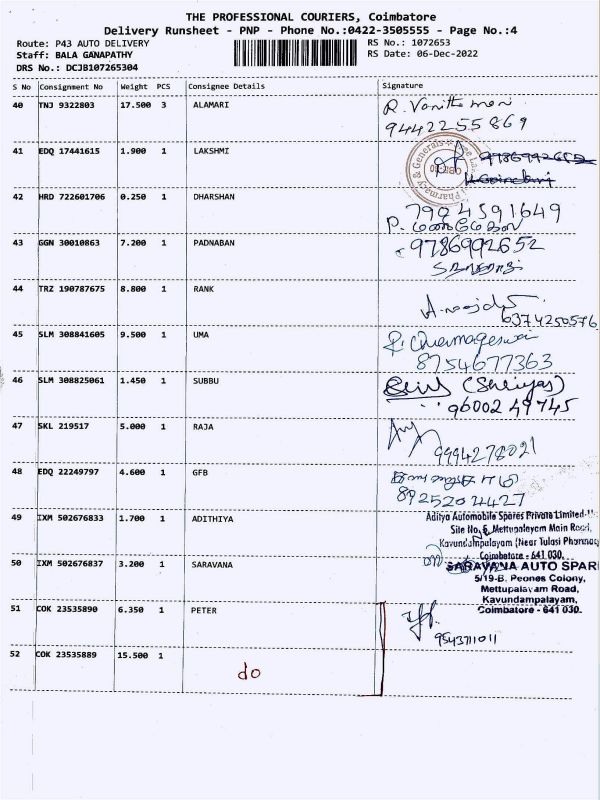 THE PROFESSIONAL COURIERS, Coimbatore
Delivery Runsheet - PNP - Phone No.:0422-3505555 - Page No.:4
Route: P43 AUTO DELIVERY RS No.: 1072653
Staff: BALA GANAPATHY RS Date: 06-Dec-2022
DRS No.: DCJB107265304
S No Consignment No Weight PCS Consignee Details Signature
40 TNJ 9322803 17.500 3 ALAMARI
9442255869
41 EDQ 17441615 1.900 1 LAKSHMI
Pharmacy & Generals
42 HRD 722601706 0.250 1 DHARSHAN 7904591649
43 GGN 30010863 7.200 1 PADNABAN 9786992652
44 TRZ 190787675 8.800 1 RANK
6374250576
45 SLM 308841605 9.500 1 UMA
8754677363
46 SLM 308825061 1.450 1 SUBBU (Shriyas)
9600249745
47 SKL 219517 5.000 1 RAJA
9994278021
48 EDQ 22249797 4.600 1 GFB
8925202427
49 IXM 502676833 1.700 1 ADITHIYA Aditya Automobile Spares Private Limited
Site No. 5, Mettupalayam Main Road,
Kavundampalayam (Near Tulasi Pharmacy
Coimbatore - 641 030.
50 IXM 502676837 3.200 1 SARAVANA SARAVANA AUTO SPAR
5/19-B. Peones Colony,
Mettupalayam Road,
Kavundampalayam,
Coimbatore - 641 030.
51 COK 23535890 6.350 1 PETER
9543711011
52 COK 23535889 15.500 1
do